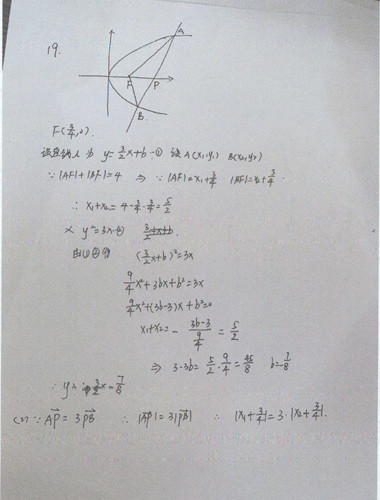 19.
A
F
P
B
F(3/4, 0).
设直线 l 为 y=3/2x+b-① 设 A(x₁,y₁) B(x₂,y₂)
∵ |AF|+|BF|=4 ⇒ ∵ |AF|=x₁+3/4 |BF|=x₂+3/4
∴ x₁+x₂=4-3/4-3/4=5/2
又 y²=3x-②
由①②得 (3/2x+b)²=3x
9/4x²+3bx+b²=3x
9/4x²+(3b-3)x+b²=0
x₁+x₂=-(3b-3)/(9/4)=5/2
⇒ 3-3b=5/2·9/4=45/8 b=-7/8
3/2x=7/8
(2) ∵ AP=3PB ∴ |AP|=3|PB| ∴ |x₁+3/4|=3·|x₂+3/4|.